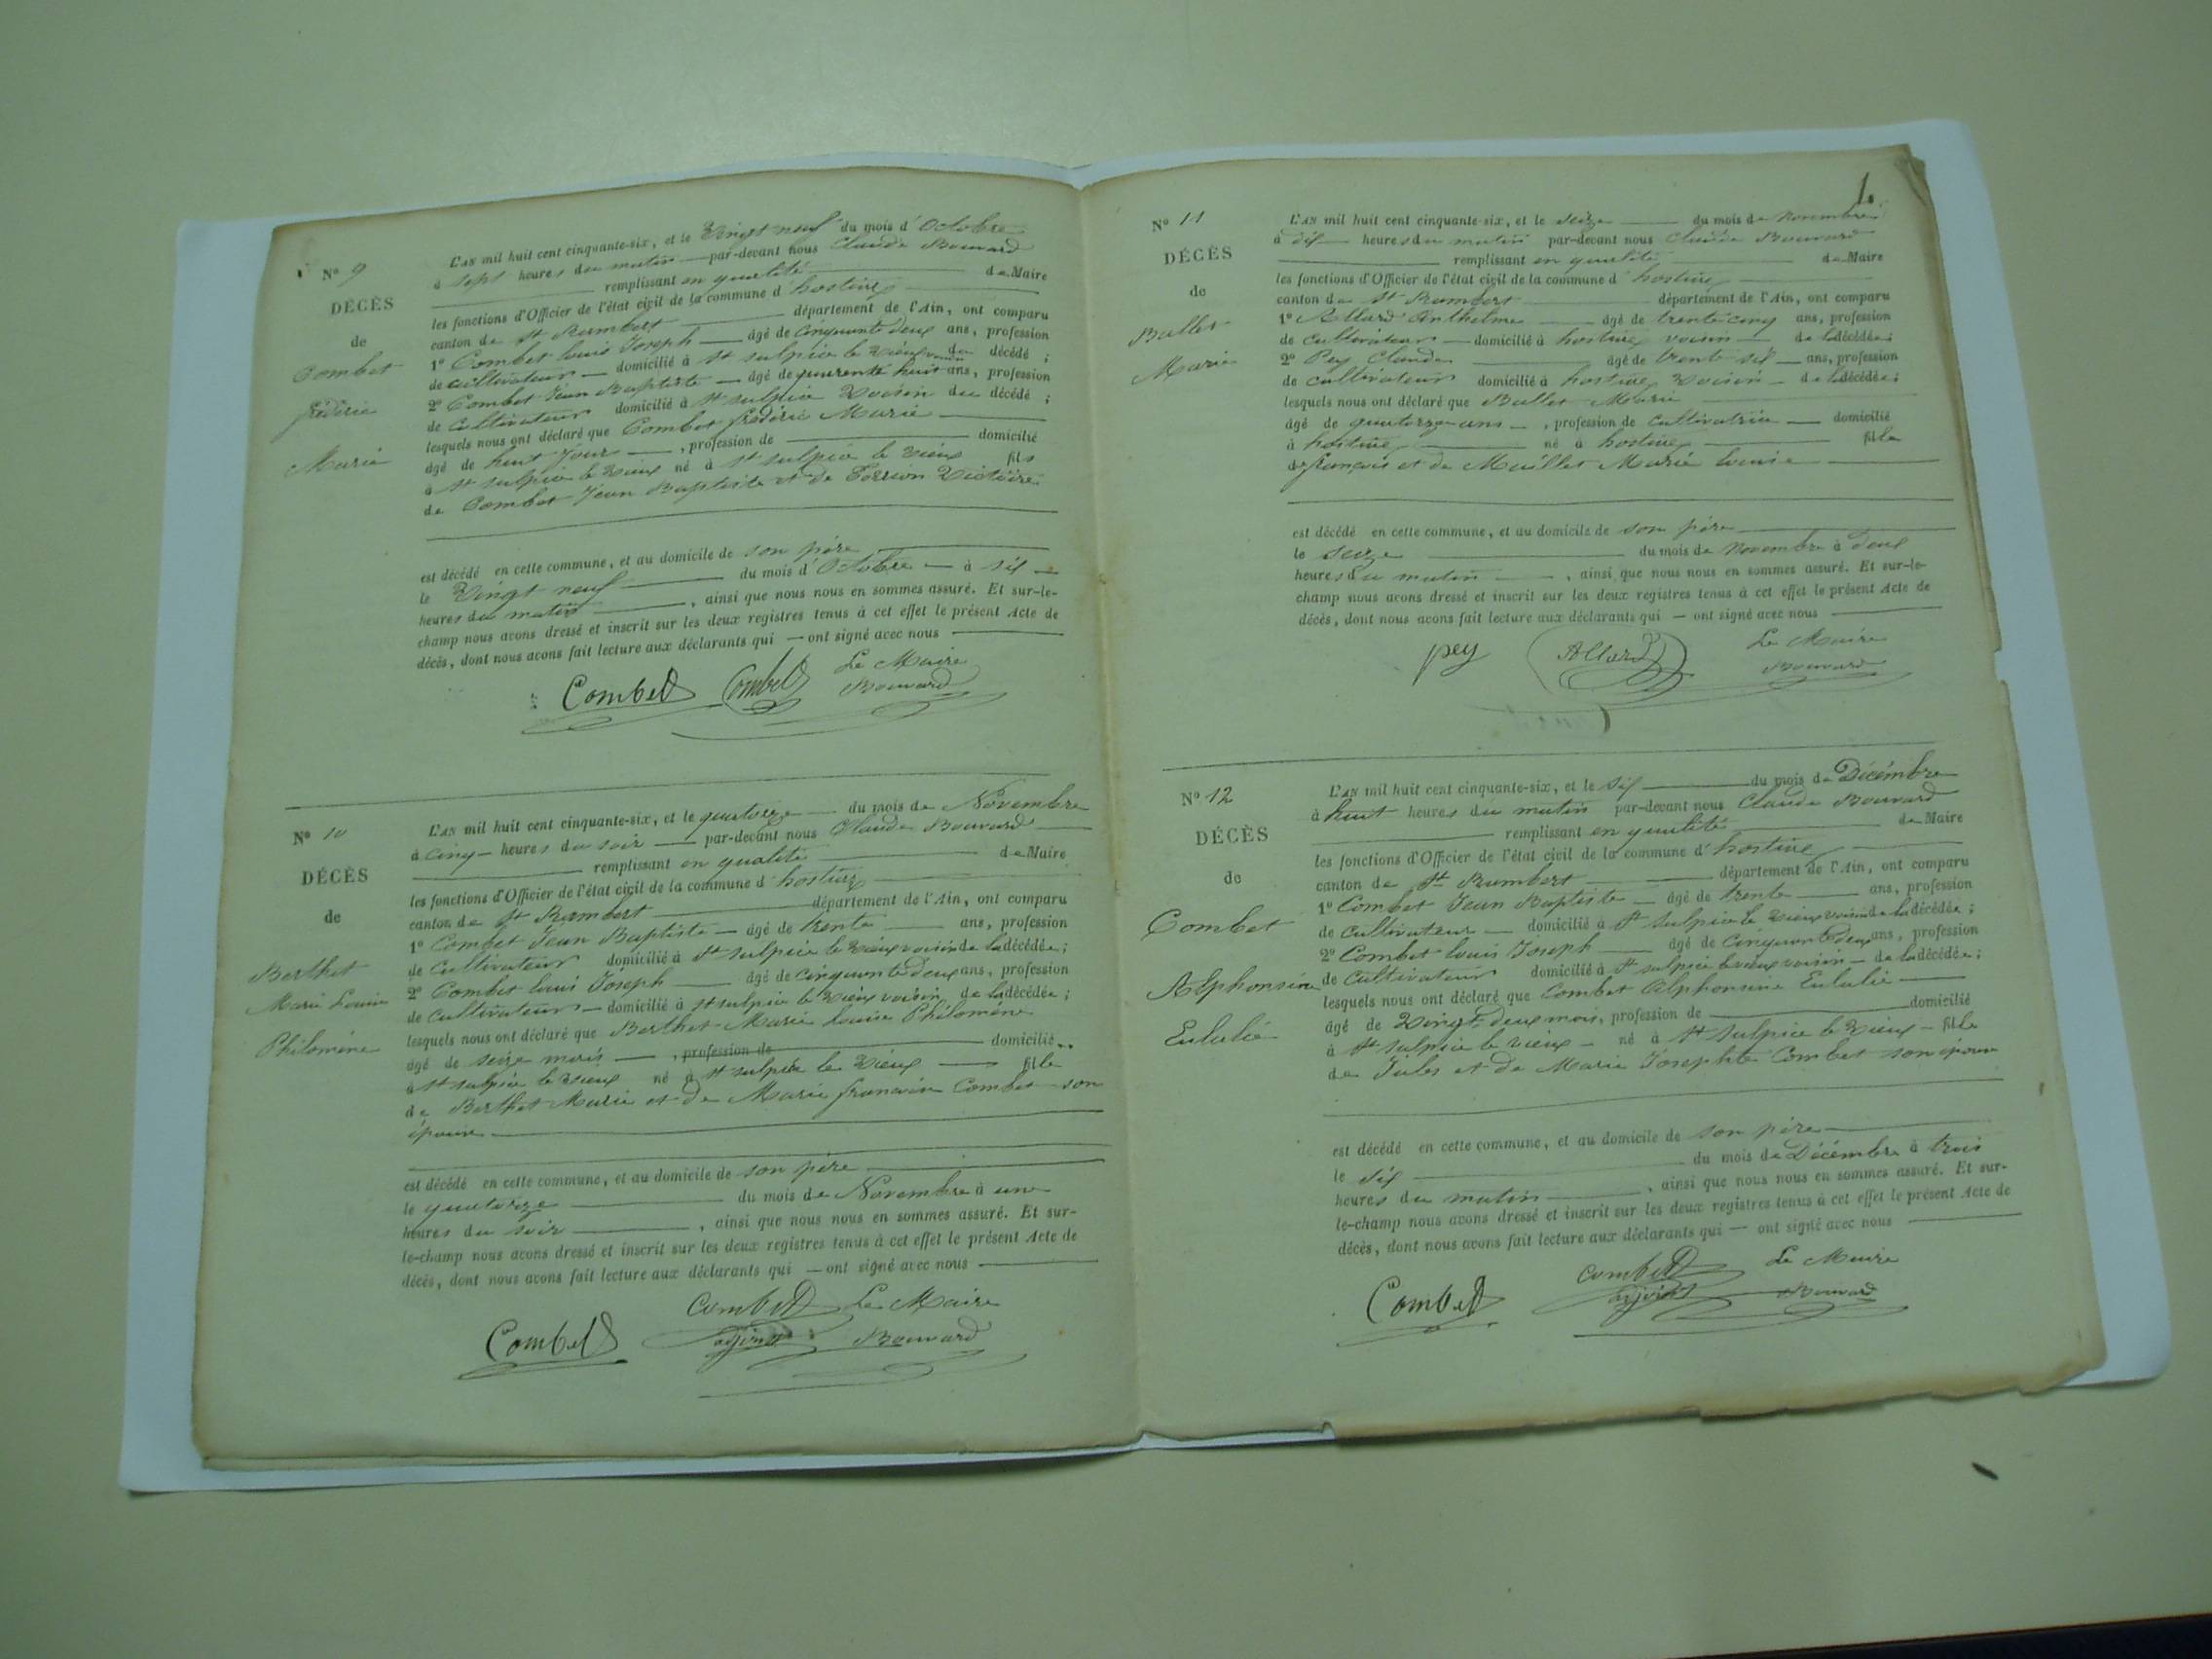 N° 9
DÉCÈS
de
Combet
frédéric
Marie
L'an mil huit cent cinquante-six, et le Vingt neuf du mois d'Octobre
à sept heures du matin par-devant nous Claude Bouvard
remplissant en qualité de Maire
les fonctions d'Officier de l'état civil de la commune d'hostiaz
canton de St Rambert département de l'Ain, ont comparu
1° Combet louis Joseph âgé de Cinquante deux ans, profession
de cultivateur domicilié à St sulpice le vieux voisin du décédé ;
2° Combet Jean Baptiste âgé de quarante huit ans, profession
de cultivateur domicilié à St sulpice Voisin du décédé ;
lesquels nous ont déclaré que Combet frédéric Marie
âgé de huit Jours , profession de domicilié
à St sulpice le vieux né à St sulpice le vieux fils
de Combet Jean Baptiste et de Victoire
est décédé en cette commune, et au domicile de son père
le Vingt neuf du mois d'Octobre à six
heures du matin , ainsi que nous nous en sommes assuré. Et sur-le-
champ nous avons dressé et inscrit sur les deux registres tenus à cet effet le présent Acte de
décès, dont nous avons fait lecture aux déclarants qui ont signé avec nous
Combet Combet Le Maire
Bouvard
N° 10
DÉCÈS
de
Berthet
Marie Louise
Philomène
L'an mil huit cent cinquante-six, et le quatorze du mois de Novembre
à cinq heures du soir par-devant nous Claude Bouvard
remplissant en qualité de Maire
les fonctions d'Officier de l'état civil de la commune d'hostiaz
canton de St Rambert département de l'Ain, ont comparu
1° Combet Jean Baptiste âgé de trente ans, profession
de Cultivateur domicilié à St sulpice le vieux voisin de la décédée ;
2° Combet louis Joseph âgé de cinquante deux ans, profession
de cultivateur domicilié à St sulpice le vieux voisin de la décédée ;
lesquels nous ont déclaré que Berthet Marie louise Philomène
âgé de seize mois , profession de domicilié
à St sulpice le vieux né à St sulpice le vieux fille
de Berthet Marie et de Marie françoise Combet son
épouse
est décédé en cette commune, et au domicile de son père
le quatorze du mois de Novembre à une
heures du soir , ainsi que nous nous en sommes assuré. Et sur-
le-champ nous avons dressé et inscrit sur les deux registres tenus à cet effet le présent Acte de
décès, dont nous avons fait lecture aux déclarants qui ont signé avec nous
Combet Combet adjoint Le Maire
Bouvard
1.
N° 11
DÉCÈS
de
Ballet
Marie
L'an mil huit cent cinquante-six, et le seize du mois de Novembre
à dix heures du matin par-devant nous Claude Bouvard
remplissant en qualité de Maire
les fonctions d'Officier de l'état civil de la commune d'hostiaz
canton de St Rambert département de l'Ain, ont comparu
1° Allard Anthelme âgé de trente cinq ans, profession
de cultivateur domicilié à hostiaz voisin de la décédée ;
2° Pey Claude âgé de trente six ans, profession
de cultivateur domicilié à hostiaz Voisin de la décédée ;
lesquels nous ont déclaré que Ballet Marie
âgé de quatorze ans , profession de Cultivatrice domicilié
à hostiaz né à hostiaz fille
de françois et de Maillet Marie louise
est décédé en cette commune, et au domicile de son père
le seize du mois de Novembre à deux
heures du matin , ainsi que nous nous en sommes assuré. Et sur-le-
champ nous avons dressé et inscrit sur les deux registres tenus à cet effet le présent Acte de
décès, dont nous avons fait lecture aux déclarants qui ont signé avec nous
pey Allard Le Maire
Bouvard
N° 12
DÉCÈS
de
Combet
Alphonsine
Eulalie
L'an mil huit cent cinquante-six, et le six du mois de Décembre
à huit heures du matin par-devant nous Claude Bouvard
remplissant en qualité de Maire
les fonctions d'Officier de l'état civil de la commune d'hostiaz
canton de St Rambert département de l'Ain, ont comparu
1° Combet Jean Baptiste âgé de trente ans, profession
de cultivateur domicilié à St sulpice le vieux voisin de la décédée ;
2° Combet louis Joseph âgé de cinquante deux ans, profession
de Cultivateur domicilié à St sulpice le vieux voisin de la décédée ;
lesquels nous ont déclaré que Combet Alphonsine Eulalie
âgé de Vingt deux mois, profession de domicilié
à St sulpice le vieux né à St sulpice le vieux fille
de Jules et de Marie Josephte Combet son épouse
est décédé en cette commune, et au domicile de son père
le six du mois de Décembre à trois
heures du matin , ainsi que nous nous en sommes assuré. Et sur-
le-champ nous avons dressé et inscrit sur les deux registres tenus à cet effet le présent Acte de
décès, dont nous avons fait lecture aux déclarants qui ont signé avec nous
Combet Combet adjoint Le Maire
Bouvard